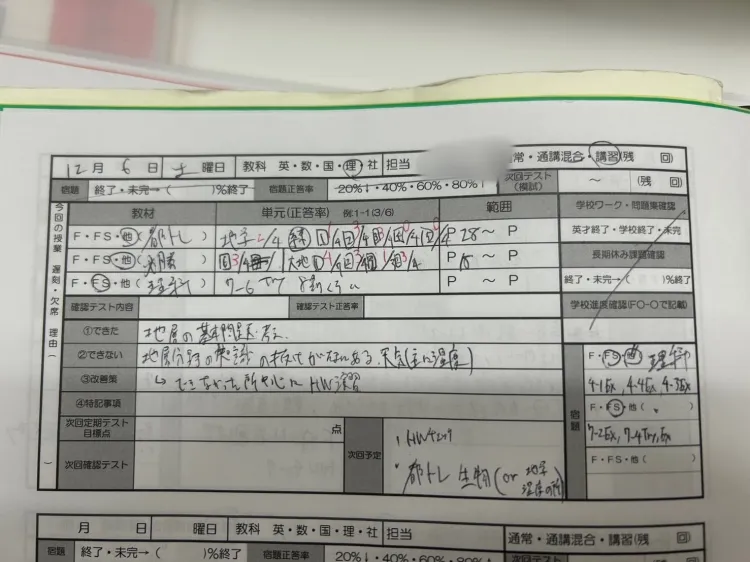 12月 6日 土曜日 教科 英・数・国・理・社 担当 通常・通講混合・講習(残 回)
宿題 終了・未完→( )%終了 宿題正答率 20%↓・40%・60%・80%↑ 次回テスト(模試) ~ (残 回)
今回の授業 遅刻・欠席 理由( )
教材 単元(正答率) 例:1-1(3/6) 範囲 学校ワーク・問題集確認
F・FS・他(都トレ) 地学 2/4 P 28~ P 英才終了・学校終了・未完
F・FS・他( ) 大地 P 18~ P 長期休み課題確認
F・FS・他(理科) 7-6 Try P ~ P 終了・未完→( )%終了
確認テスト内容 確認テスト正答率 学校進度確認(FO-Oで記載)
①できた 地層の基本問題・考え
②できない 地層分野の知識の抜けがたまにある 天気(主に湿度)
③改善策 ↳できなかった所中心にHW演習
④特記事項
宿題
F・FS・他 理科
4-1Ex, 4-4Ex, 4-3Ex
F・FS・他( )
7-2Ex, 7-4Try, Ex
F・FS・他( )
次回定期テスト目標点 点 次回予定 HWチェック
次回確認テスト ・都トレ 生物(or 地学 湿度の所)
月 日 曜日 教科 英・数・国・理・社 担当 通常・通講混合・講習(残 回)
宿題 終了・未完→( )%終了 宿題正答率 20%↓・40%・60%・80%↑ 次回テスト